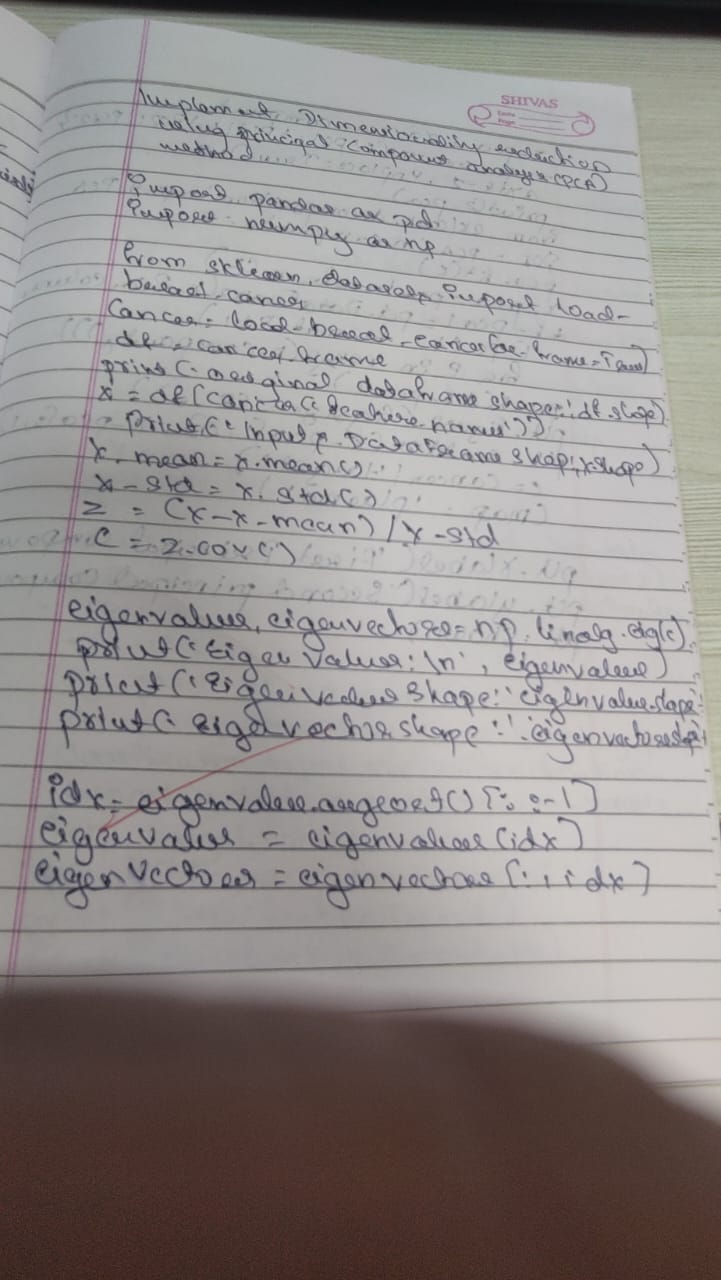 SHIVAS
Date
Page
Implement Dimensionality reduction
using principal component analysis (PCA)
method
Import pandas as pd
Import numpy as np
from sklearn. datasets import load-
breast_cancer
Cancer = load_breast_cancer(as_frame=True)
df = cancer.frame
print (: original dataframe shape:' df.shape)
x = df [cancer[: feature_names']]
print (: Input Dataframe shape: x.shape)
x_mean = x.mean()
x_std = x.std()
z = (x-x_mean) / x_std
c = z.cov()
eigenvalues, eigenvectors = np. linalg. eig(c)
print (: Eigen values: \n', eigenvalues)
print (: Eigenvalues shape: 'eigenvalue.shape
print (: eigenvectors shape :'. eigenvectors.shape
idx = eigenvalues.argsort() [: :-1]
eigenvalues = eigenvalues [idx]
eigenvectors = eigenvectors [: , idx]